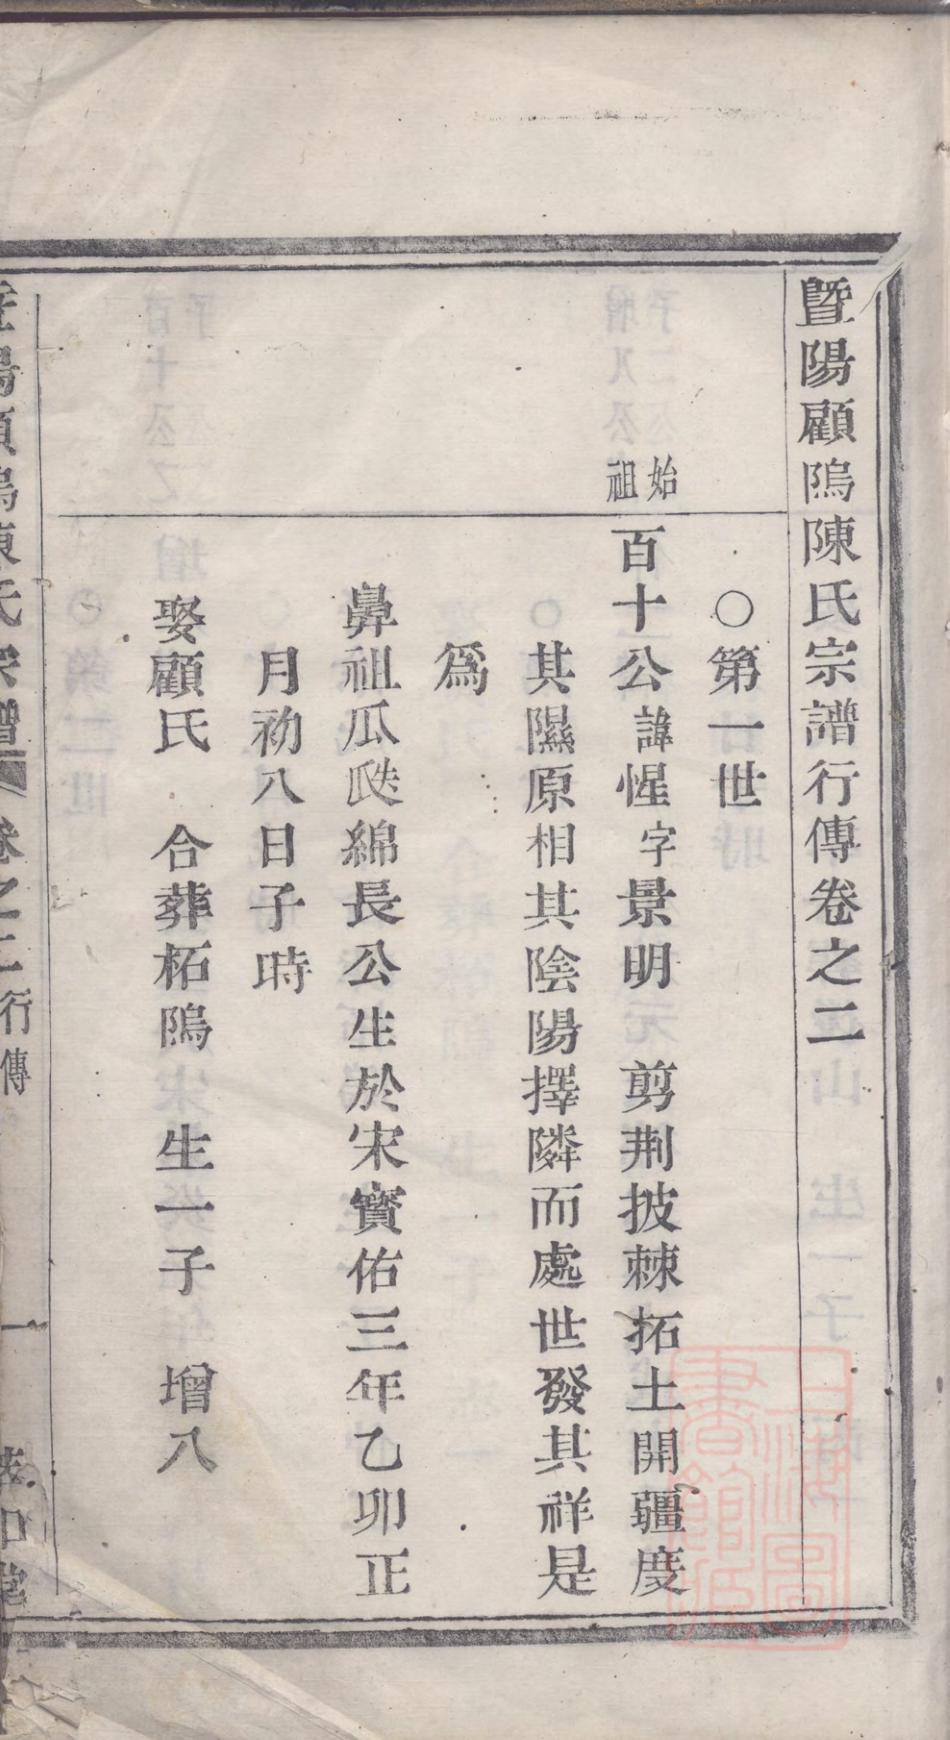 暨陽顧隖陳氏宗譜行傳卷之二
○第一世
始祖
百十公 諱惺 字景明 剪荆披棘拓土開疆度
其隰原相其陰陽擇隣而處世發其祥是
爲
鼻祖瓜瓞綿長公生於宋寳佑三年乙卯正
月初八日子時
娶顧氏 合葬柘隖 生一子 增八
陽顧隖陳氏宗譜 卷之二行傳 一